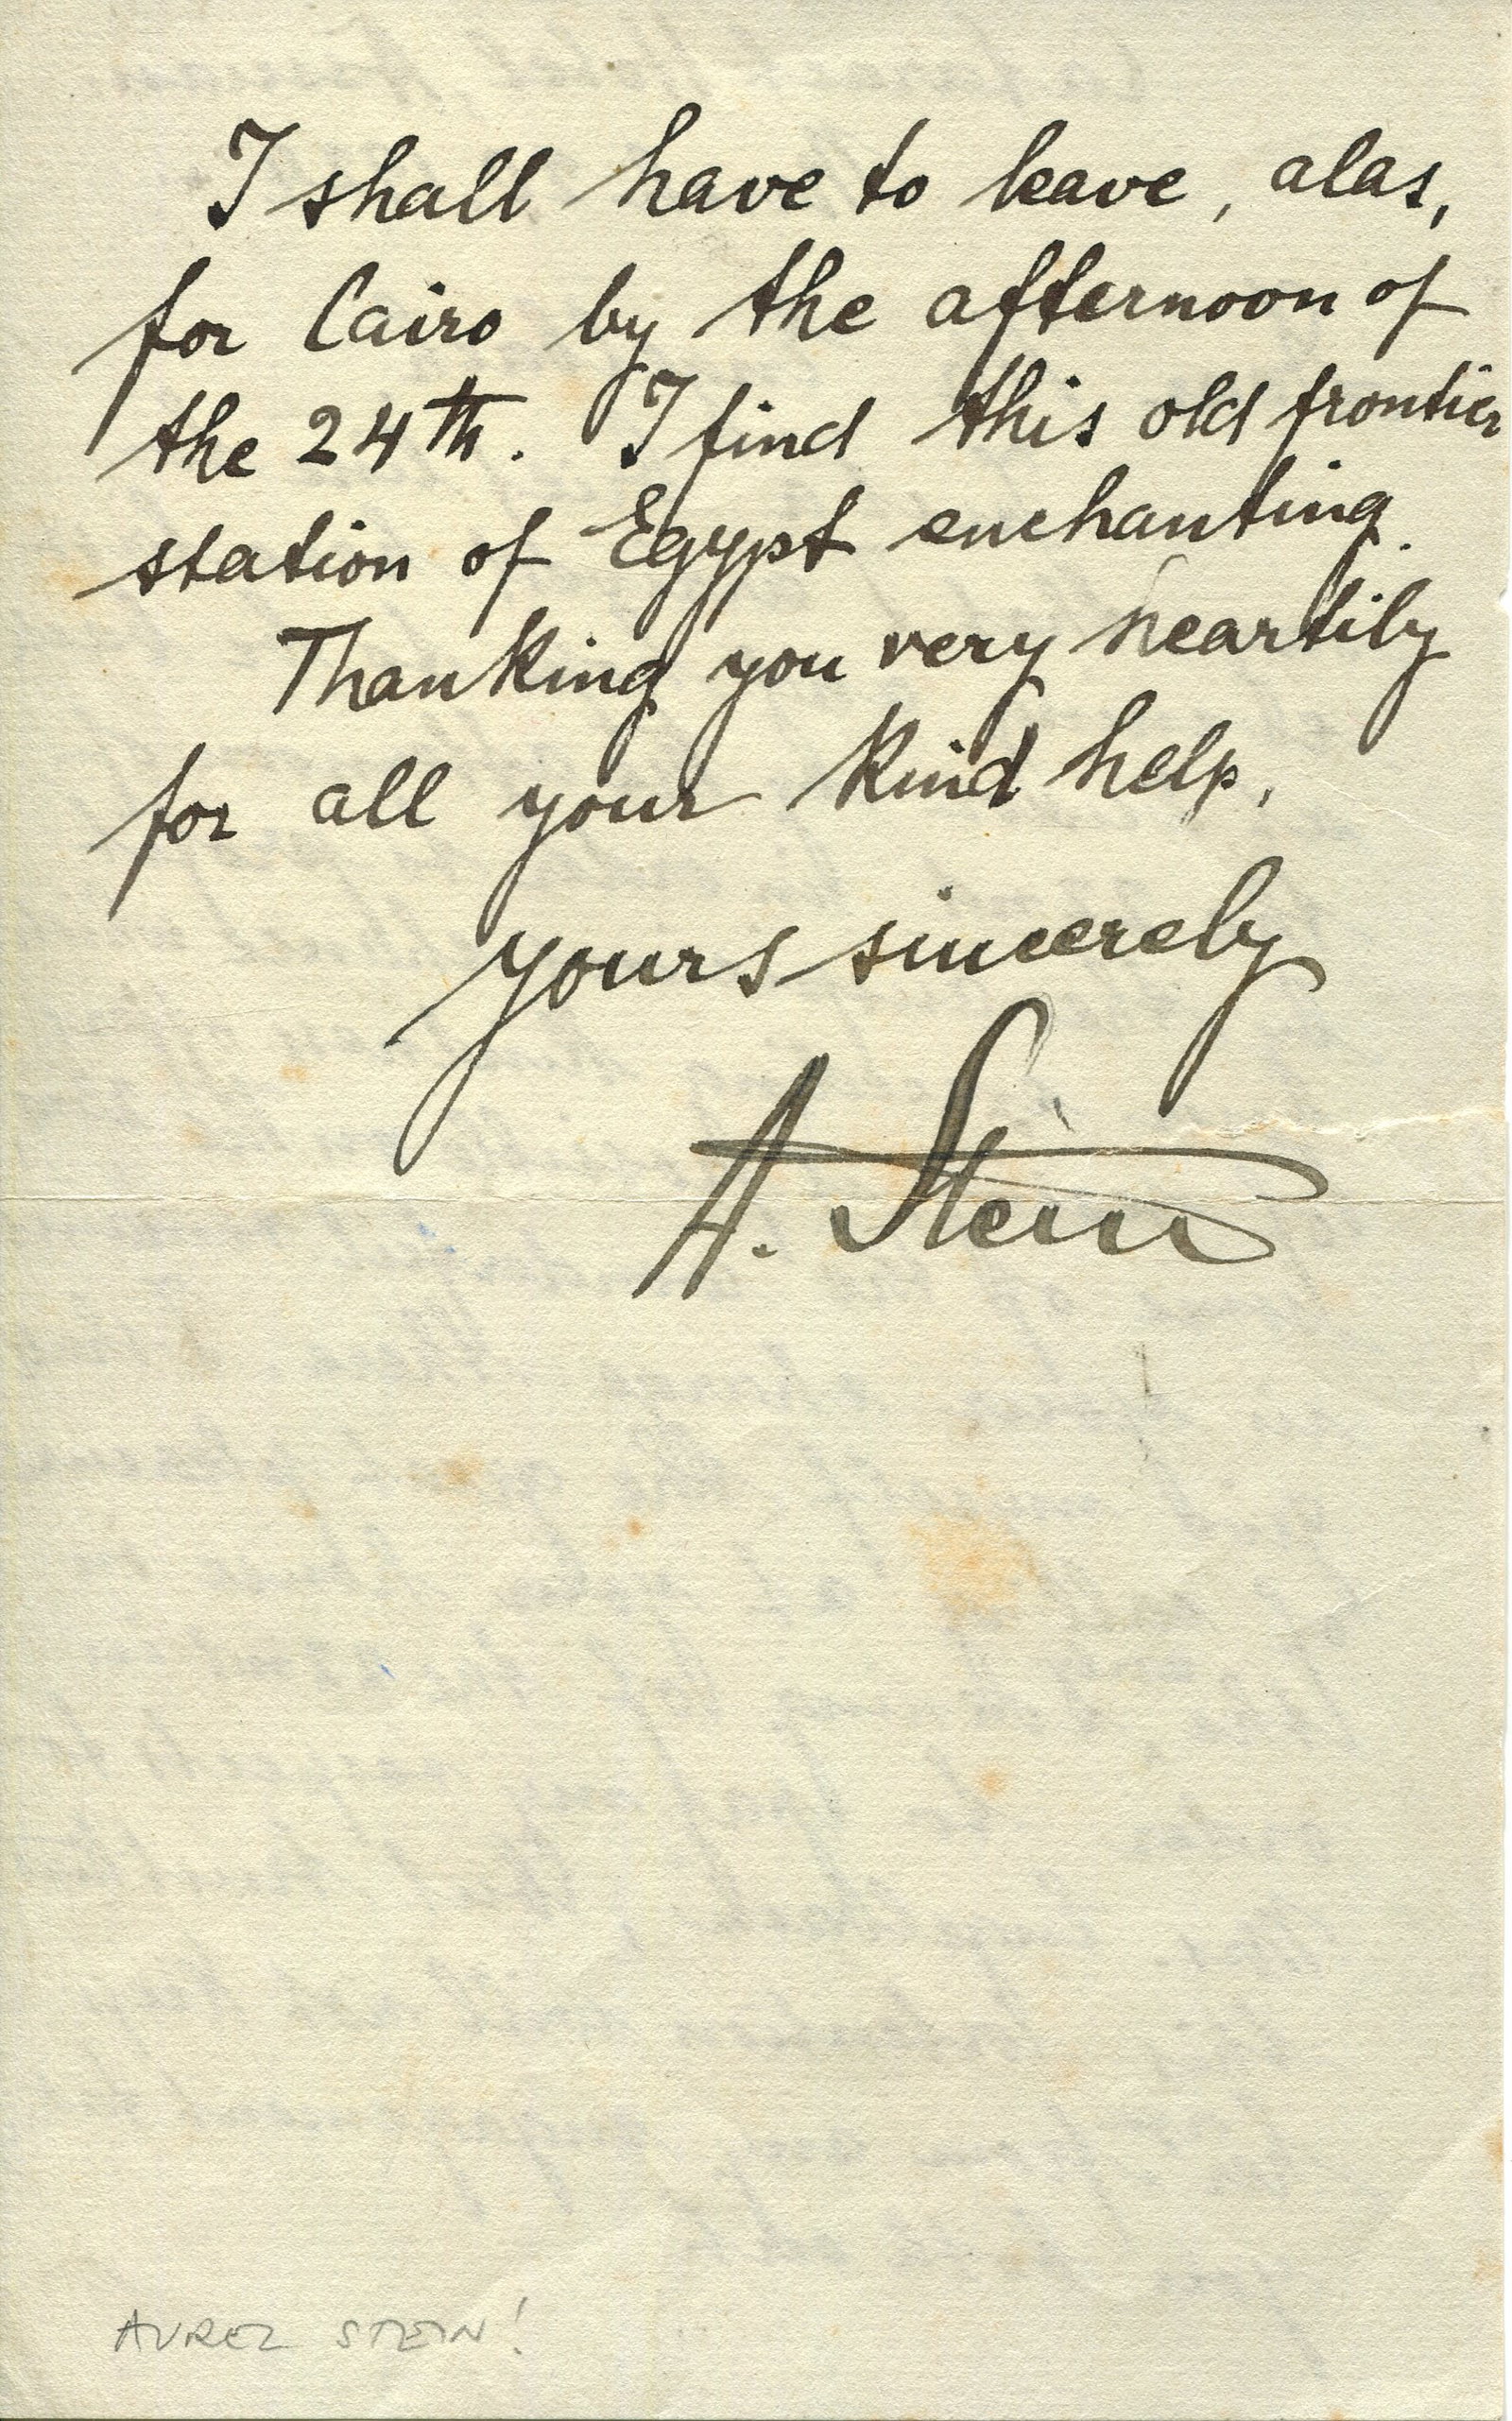 I shall have to leave, alas,
for Cairo by the afternoon of
the 24th. I find this old frontier
station of Egypt enchanting.
Thanking you very heartily
for all your kind help,
yours sincerely
A. Stein
AUREL STEIN!